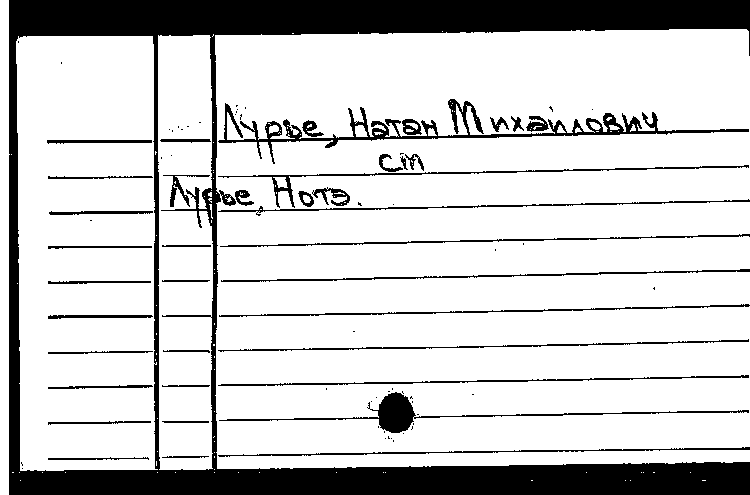 Лурье, Натан Михайлович
см
Лурье, Нотэ.